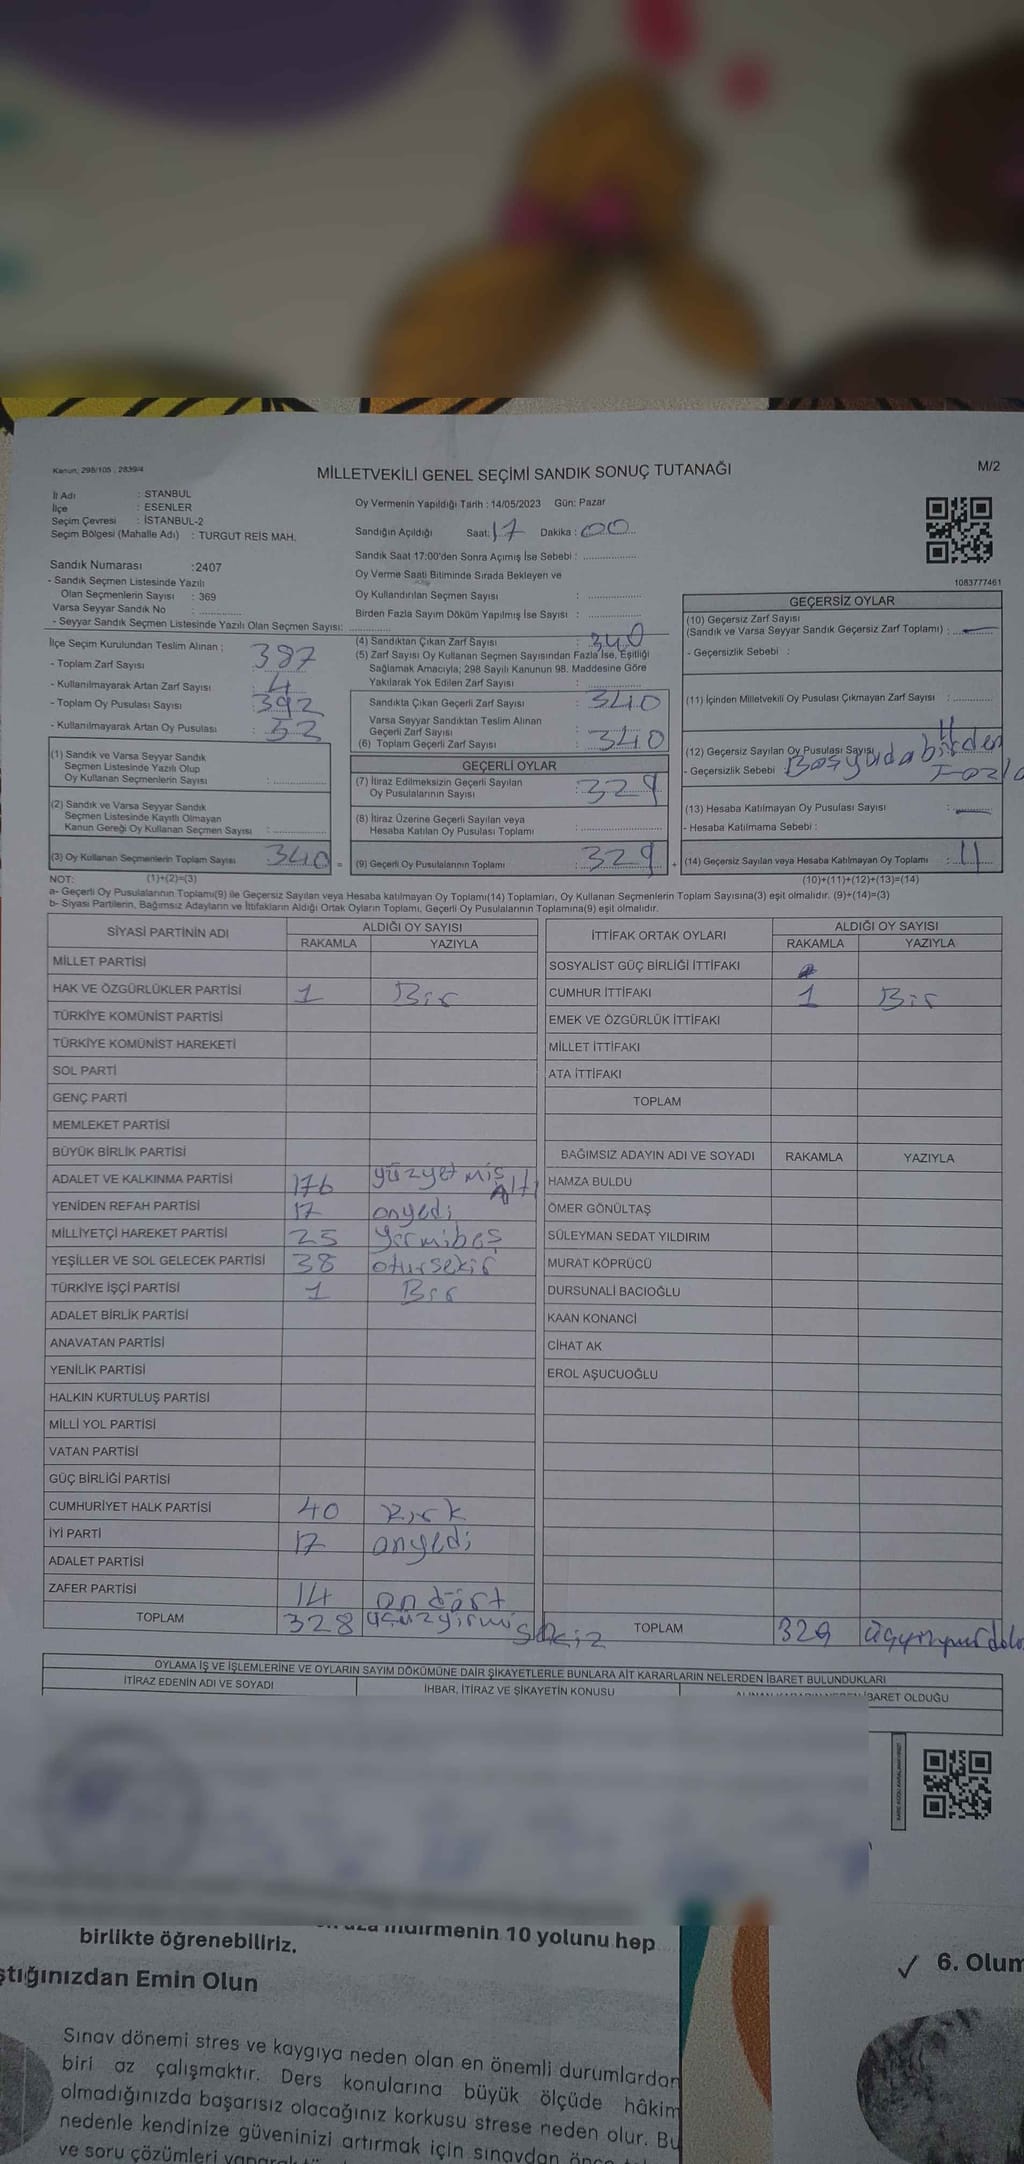 Kanun, 298/105 , 2839/4
MİLLETVEKİLİ GENEL SEÇİMİ SANDIK SONUÇ TUTANAĞI
M/2
İl Adı : STANBUL
İlçe : ESENLER
Seçim Çevresi : İSTANBUL-2
Seçim Bölgesi (Mahalle Adı) : TURGUT REİS MAH.
Sandık Numarası :2407
- Sandık Seçmen Listesinde Yazılı
Olan Seçmenlerin Sayısı : 369
Varsa Seyyar Sandık No :
- Seyyar Sandık Seçmen Listesinde Yazılı Olan Seçmen Sayısı:
Oy Vermenin Yapıldığı Tarih : 14/05/2023 Gün: Pazar
Sandığın Açıldığı Saat: 17 Dakika : 00
Sandık Saat 17:00'den Sonra Açımış İse Sebebi :
Oy Verme Saati Bitiminde Sırada Bekleyen ve
Oy Kullandırılan Seçmen Sayısı :
Birden Fazla Sayım Döküm Yapılmış İse Sayısı :
1083777461
İlçe Seçim Kurulundan Teslim Alınan ;
- Toplam Zarf Sayısı 387
- Kullanılmayarak Artan Zarf Sayısı 4
- Toplam Oy Pusulası Sayısı 392
- Kullanılmayarak Artan Oy Pusulası : 52
(1) Sandık ve Varsa Seyyar Sandık
Seçmen Listesinde Yazılı Olup
Oy Kullanan Seçmenlerin Sayısı :
(2) Sandık ve Varsa Seyyar Sandık
Seçmen Listesinde Kayıtlı Olmayan
Kanun Gereği Oy Kullanan Seçmen Sayısı :
(3) Oy Kullanan Seçmenlerin Toplam Sayısı 340 =
(4) Sandıktan Çıkan Zarf Sayısı : 340
(5) Zarf Sayısı Oy Kullanan Seçmen Sayısından Fazla İse, Eşitliği
Sağlamak Amacıyla; 298 Sayılı Kanunun 98. Maddesine Göre
Yakılarak Yok Edilen Zarf Sayısı :
Sandıkta Çıkan Geçerli Zarf Sayısı : 340
Varsa Seyyar Sandıktan Teslim Alınan
Geçerli Zarf Sayısı :
(6) Toplam Geçerli Zarf Sayısı : 340
GEÇERLİ OYLAR
(7) İtiraz Edilmeksizin Geçerli Sayılan
Oy Pusulalarının Sayısı : 329
(8) İtiraz Üzerine Geçerli Sayılan veya
Hesaba Katılan Oy Pusulası Toplamı :
(9) Geçerli Oy Pusulalarının Toplamı : 329 +
GEÇERSİZ OYLAR
(10) Geçersiz Zarf Sayısı
(Sandık ve Varsa Seyyar Sandık Geçersiz Zarf Toplamı) : —
- Geçersizlik Sebebi :
(11) İçinden Milletvekili Oy Pusulası Çıkmayan Zarf Sayısı :
(12) Geçersiz Sayılan Oy Pusulası Sayısı 11
- Geçersizlik Sebebi birden
Fazla
(13) Hesaba Katılmayan Oy Pusulası Sayısı : —
- Hesaba Katılmama Sebebi :
(14) Geçersiz Sayılan veya Hesaba Katılmayan Oy Toplamı : 11
NOT: (1)+(2)=(3) (10)+(11)+(12)+(13)=(14)
a- Geçerli Oy Pusulalarının Toplamı(9) ile Geçersiz Sayılan veya Hesaba katılmayan Oy Toplamı(14) Toplamları, Oy Kullanan Seçmenlerin Toplam Sayısına(3) eşit olmalıdır. (9)+(14)=(3)
b- Siyasi Partilerin, Bağımsız Adayların ve İttifakların Aldığı Ortak Oyların Toplamı, Geçerli Oy Pusulalarının Toplamına(9) eşit olmalıdır.
SİYASİ PARTİNİN ADI ALDIĞI OY SAYISI
RAKAMLA YAZIYLA
MİLLET PARTİSİ
HAK VE ÖZGÜRLÜKLER PARTİSİ 1 Bir
TÜRKİYE KOMÜNİST PARTİSİ
TÜRKİYE KOMÜNİST HAREKETİ
SOL PARTİ
GENÇ PARTİ
MEMLEKET PARTİSİ
BÜYÜK BİRLİK PARTİSİ
ADALET VE KALKINMA PARTİSİ 176 yüzyetmiş Altı
YENİDEN REFAH PARTİSİ 17 onyedi
MİLLİYETÇİ HAREKET PARTİSİ 25 yermibeş
YEŞİLLER VE SOL GELECEK PARTİSİ 38
TÜRKİYE İŞÇİ PARTİSİ 1 Bir
ADALET BİRLİK PARTİSİ
ANAVATAN PARTİSİ
YENİLİK PARTİSİ
HALKIN KURTULUŞ PARTİSİ
MİLLİ YOL PARTİSİ
VATAN PARTİSİ
GÜÇ BİRLİĞİ PARTİSİ
CUMHURİYET HALK PARTİSİ 40 Kırk
İYİ PARTİ 17 onyedi
ADALET PARTİSİ
ZAFER PARTİSİ 14 on dört
TOPLAM 328 üçüzyirmi sekiz
İTTİFAK ORTAK OYLARI ALDIĞI OY SAYISI
RAKAMLA YAZIYLA
SOSYALİST GÜÇ BİRLİĞİ İTTİFAKI
CUMHUR İTTİFAKI 1 Bir
EMEK VE ÖZGÜRLÜK İTTİFAKI
MİLLET İTTİFAKI
ATA İTTİFAKI
TOPLAM
BAĞIMSIZ ADAYIN ADI VE SOYADI RAKAMLA YAZIYLA
HAMZA BULDU
ÖMER GÖNÜLTAŞ
SÜLEYMAN SEDAT YILDIRIM
MURAT KÖPRÜCÜ
DURSUNALİ BACIOĞLU
KAAN KONANCİ
CİHAT AK
EROL AŞUCUOĞLU
TOPLAM 329
OYLAMA İŞ VE İŞLEMLERİNE VE OYLARIN SAYIM DÖKÜMÜNE DAİR ŞİKAYETLERLE BUNLARA AİT KARARLARIN NELERDEN İBARET BULUNDUKLARI
İTİRAZ EDENİN ADI VE SOYADI İHBAR, İTİRAZ VE ŞİKAYETİN KONUSU İBARET OLDUĞU
10 yolunu hep
birlikte öğrenebiliriz.
ştığınızdan Emin Olun
✓ 6. Olum
Sınav dönemi stres ve kaygıya neden olan en önemli durumlardan
biri az çalışmaktır. Ders konularına büyük ölçüde hâkim
olmadığınızda başarısız olacağınız korkusu strese neden olur. Bu
nedenle kendinize güveninizi artırmak için sınavdan önce
ve soru çözümleri